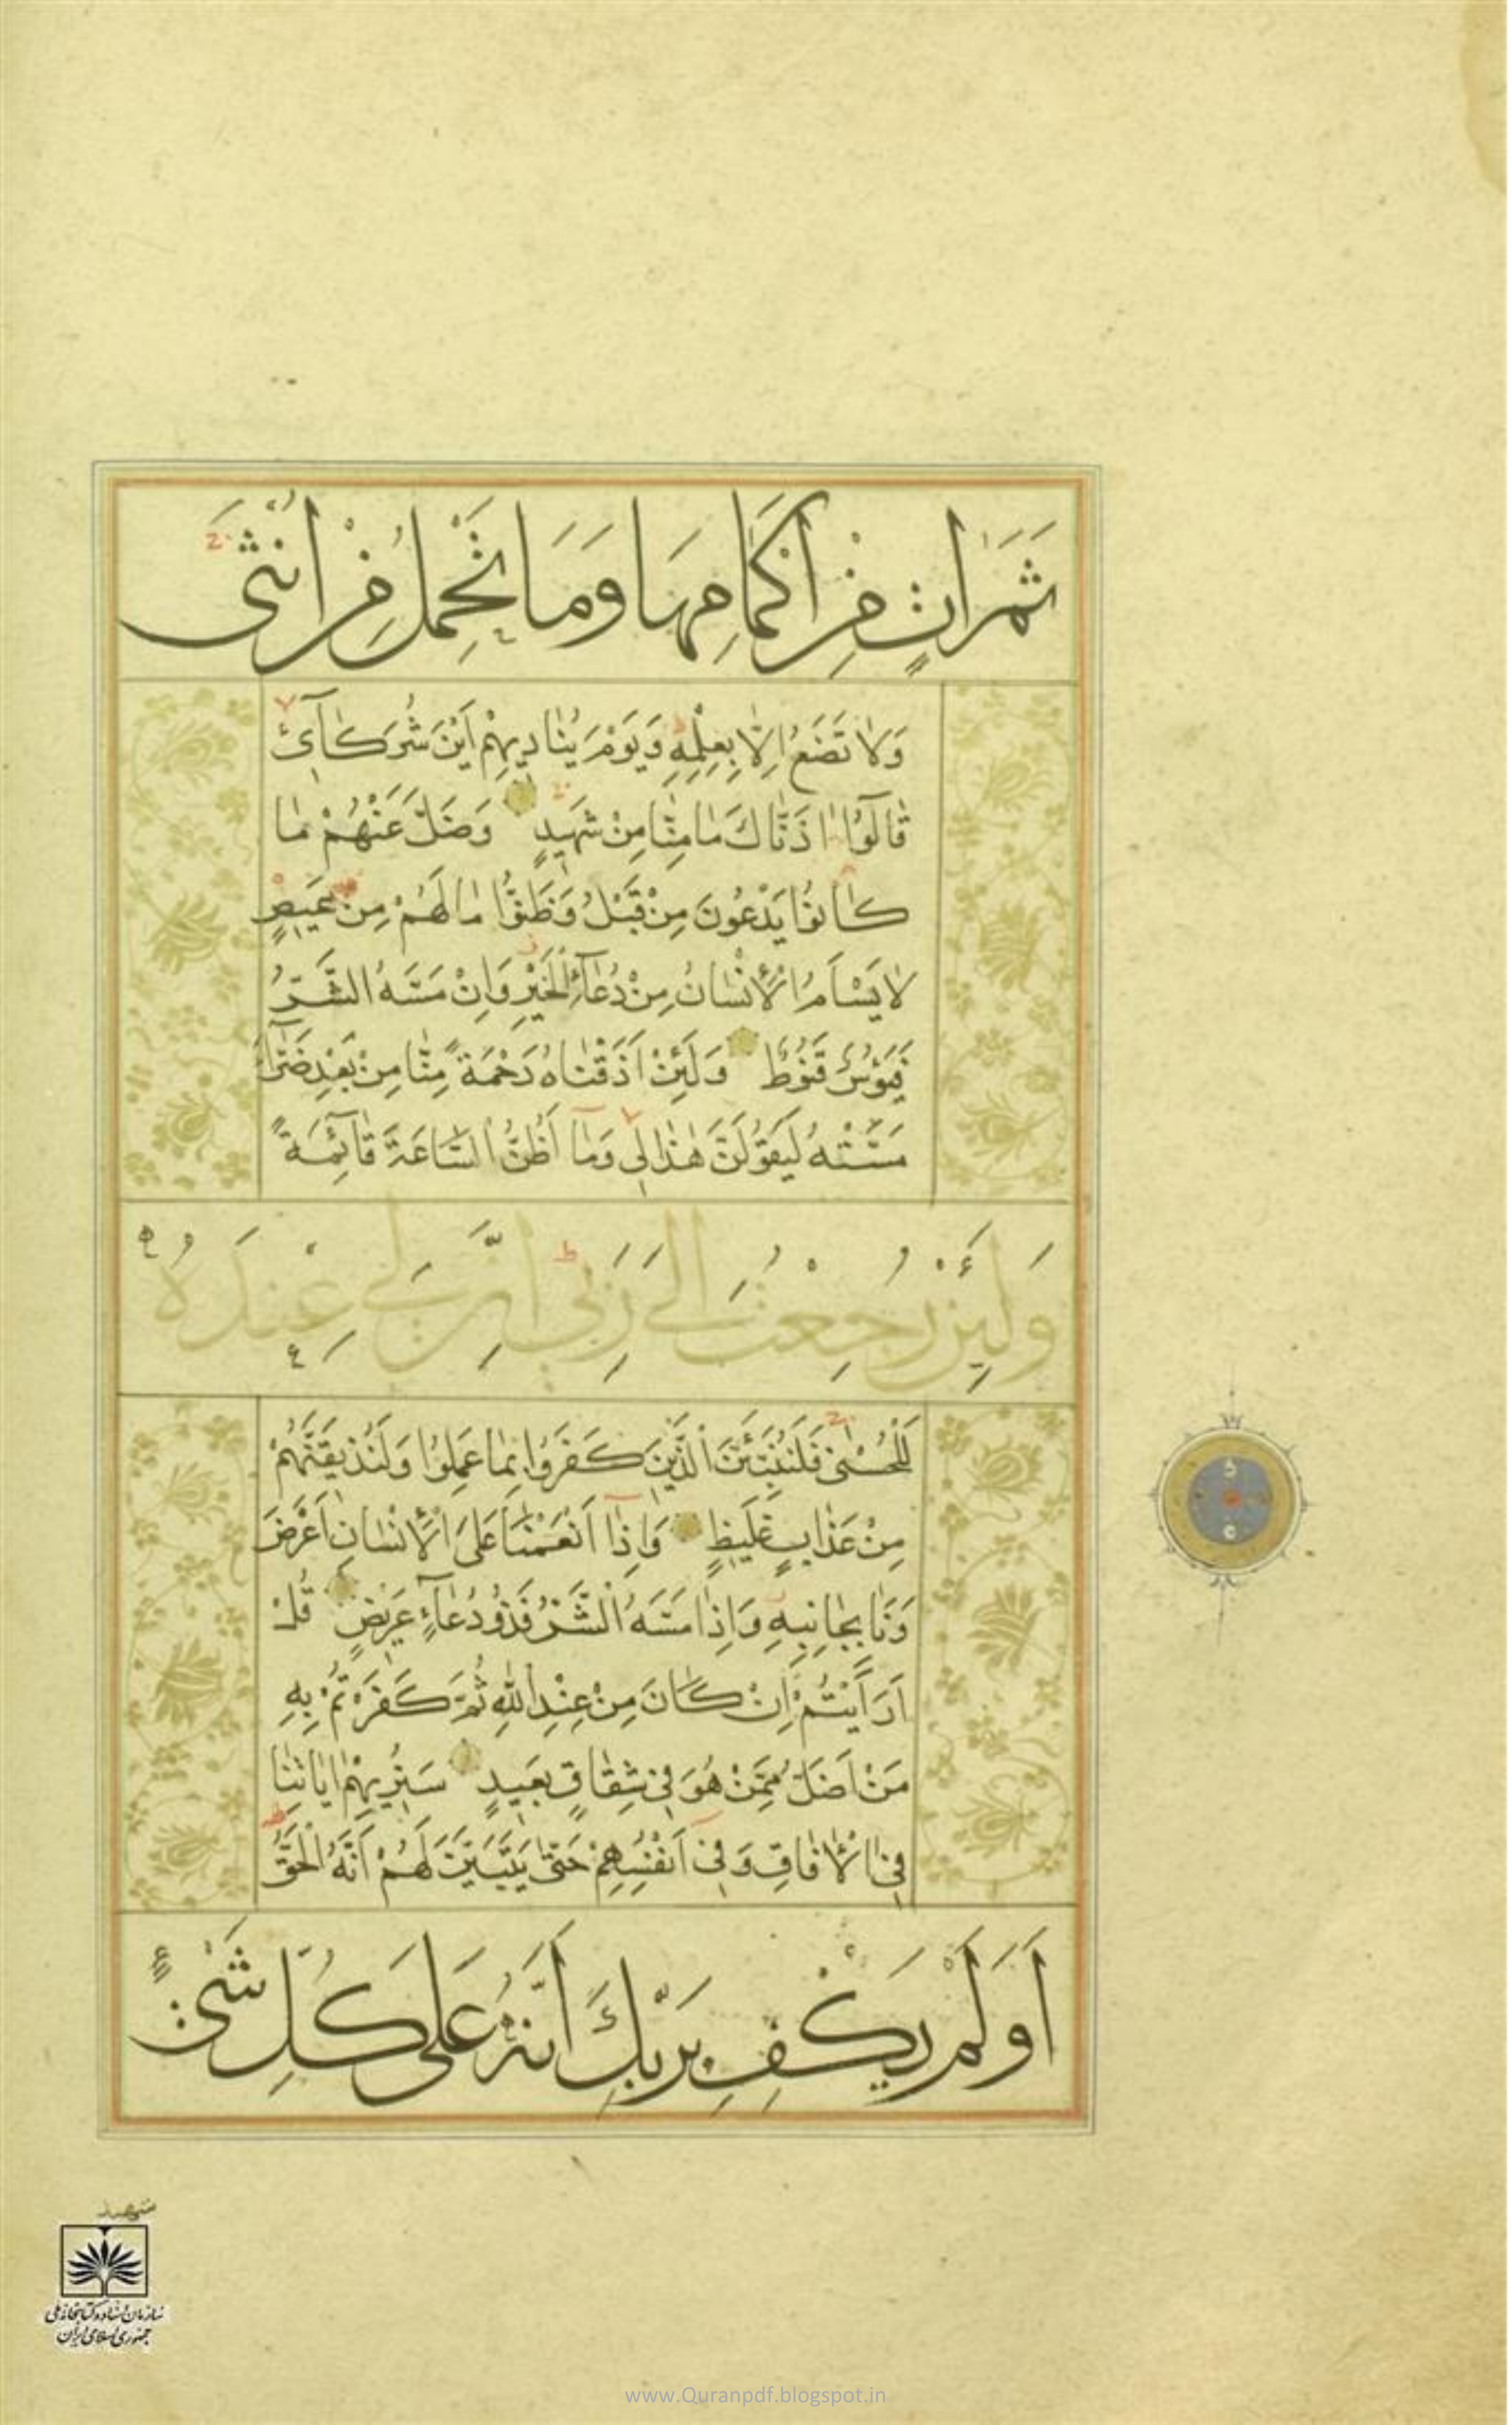 ثَمَرَاتٍ مِنْ اَكْمَامِهَا وَمَا تَحْمِلُ مِنْ اُنْثَى
وَلَا تَضَعُ اِلَّا بِعِلْمِهِ وَيَوْمَ يُنَادِيهِمْ اَيْنَ شُرَكَآئِ
قَالُوٓا اٰذَنَّاكَ مَا مِنَّا مِنْ شَهِيدٍ وَضَلَّ عَنْهُمْ مَا
كَانُوا يَدْعُونَ مِنْ قَبْلُ وَظَنُّوا مَا لَهُمْ مِنْ مَحِيصٍ
لَا يَسْاَمُ الْاِنْسَانُ مِنْ دُعَآءِ الْخَيْرِ وَاِنْ مَسَّهُ الشَّرُّ
فَيَؤُسٌ قَنُوطٌ وَلَئِنْ اَذَقْنَاهُ رَحْمَةً مِنَّا مِنْ بَعْدِ ضَرَّآءَ
مَسَّتْهُ لَيَقُولَنَّ هٰذَا لِى وَمَآ اَظُنُّ السَّاعَةَ قَآئِمَةً
وَلَئِنْ رُجِعْتُ اِلَى رَبِّى اِنَّ لِى عِنْدَهُ
لَلْحُسْنَى فَلَنُنَبِّئَنَّ الَّذِينَ كَفَرُوا بِمَا عَمِلُوا وَلَنُذِيقَنَّهُمْ
مِنْ عَذَابٍ غَلِيظٍ وَاِذَآ اَنْعَمْنَا عَلَى الْاِنْسَانِ اَعْرَضَ
وَنَا بِجَانِبِهِ وَاِذَا مَسَّهُ الشَّرُّ فَذُو دُعَآءٍ عَرِيضٍ قُلْ
اَرَاَيْتُمْ اِنْ كَانَ مِنْ عِنْدِ اللّٰهِ ثُمَّ كَفَرْتُمْ بِهِ
مَنْ اَضَلُّ مِمَّنْ هُوَ فِى شِقَاقٍ بَعِيدٍ سَنُرِيهِمْ اٰيَاتِنَا
فِى الْاٰفَاقِ وَفِىٓ اَنْفُسِهِمْ حَتَّى يَتَبَيَّنَ لَهُمْ اَنَّهُ الْحَقُّ
اَوَلَمْ يَكْفِ بِرَبِّكَ اَنَّهُ عَلَى كُلِّ شَىْءٍ
شهيد
سازمان اسناد و کتابخانه ملی
جمهوری اسلامی ایران
www.Quranpdf.blogspot.in